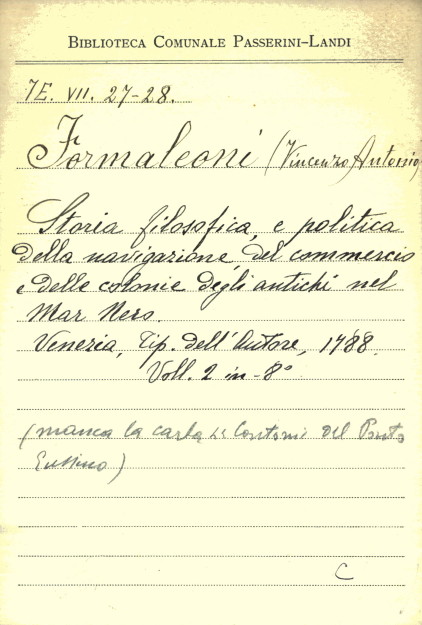 BIBLIOTECA COMUNALE PASSERINI-LANDI
7E. VII. 27-28.
Formaleoni (Vincenzo Antonio)
Storia filosofica e politica
della navigazione, del commercio
e delle colonie degli antichi nel
Mar Nero.
Venezia, Tip. dell'Autore, 1788.
Voll. 2 in-8°
(manca la carta Contorni del Ponto
Eussino)
C